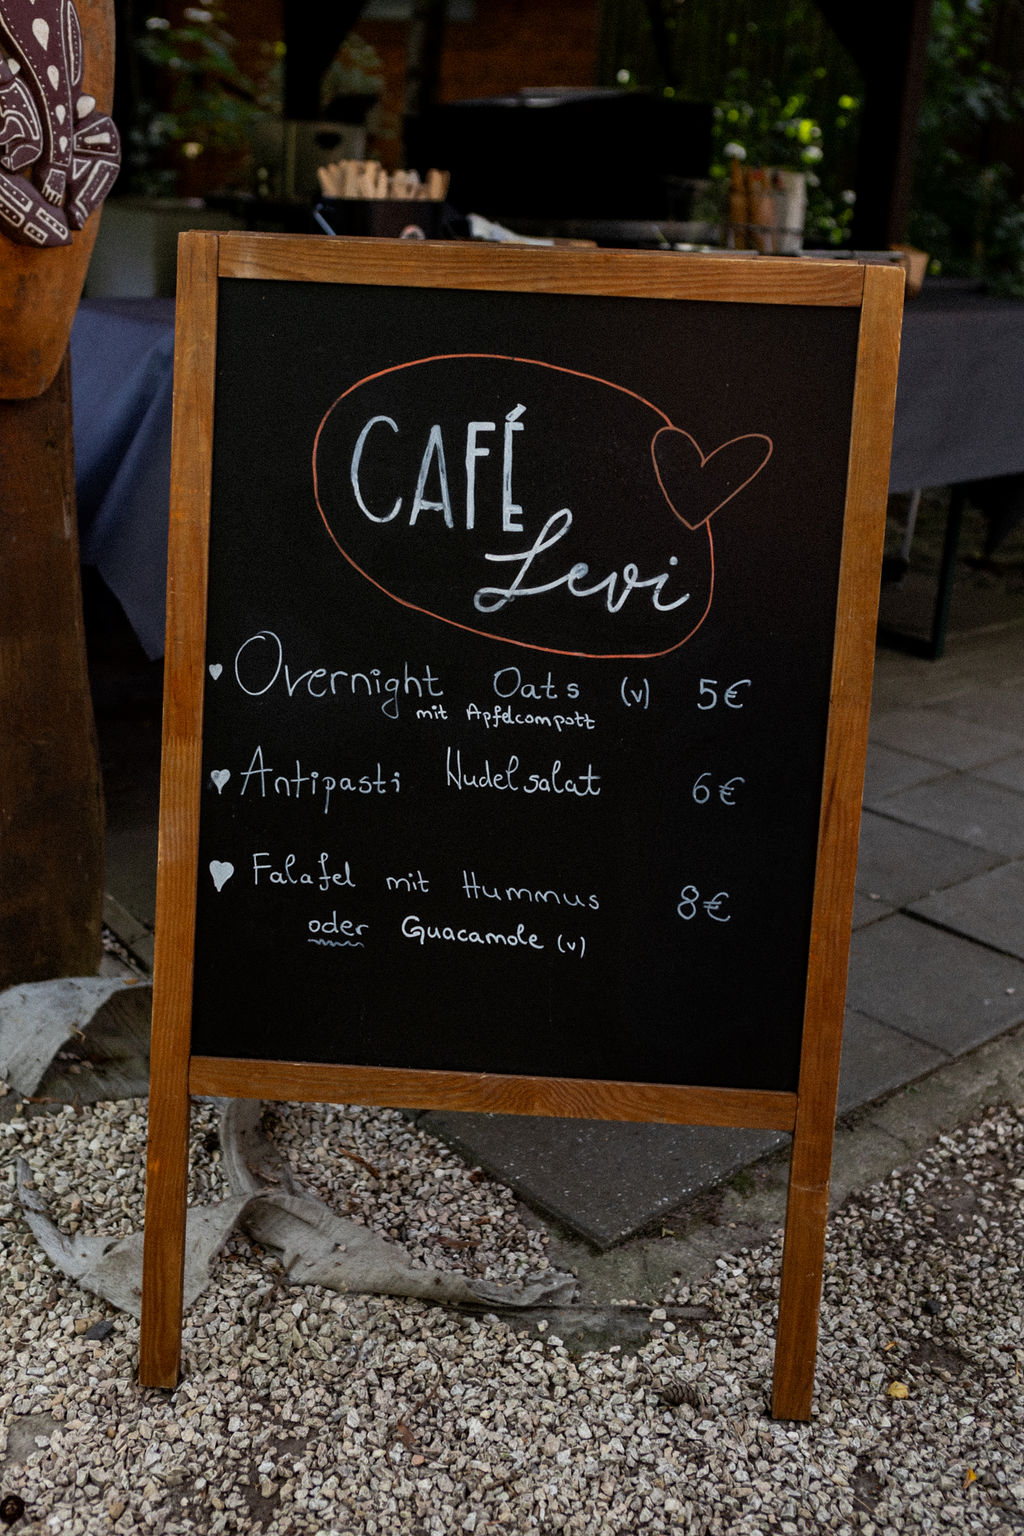 CAFÉ
Levi
Overnight Oats (v) 5€
mit Apfelcompott
Antipasti Nudelsalat 6€
Falafel mit Hummus 8€
oder Guacamole (v)